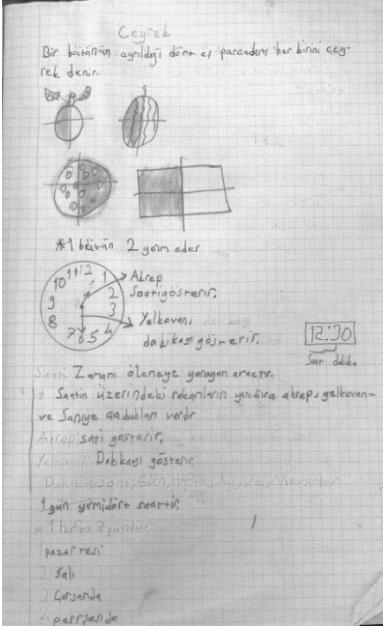 Çeyrek
Bir bütünün ayrıldığı dört eş parçadan her birini çey-
rek denir.
*1 bütün 2 yarım eder
10 11 12 1
9 2
8 3
7 6 5 4
Akrep
Saati gösterir.
Yelkovan,
dakikayı gösterir.
12:30
Saat dakika
Saati Zamanı ölçmeye yarayan araçtır.
* Saatin üzerindeki rakamların yanısıra akrep, yelkovan-
ve Saniye çubukları vardır
Akrep sati gösterir.
Yelkovan Dakkayı gösterir.
1 gün yirmidört saattir.
* 1 hafta 7 gündür
1 pazartesi
2 Salı
3 Çarşanda
4 perşende